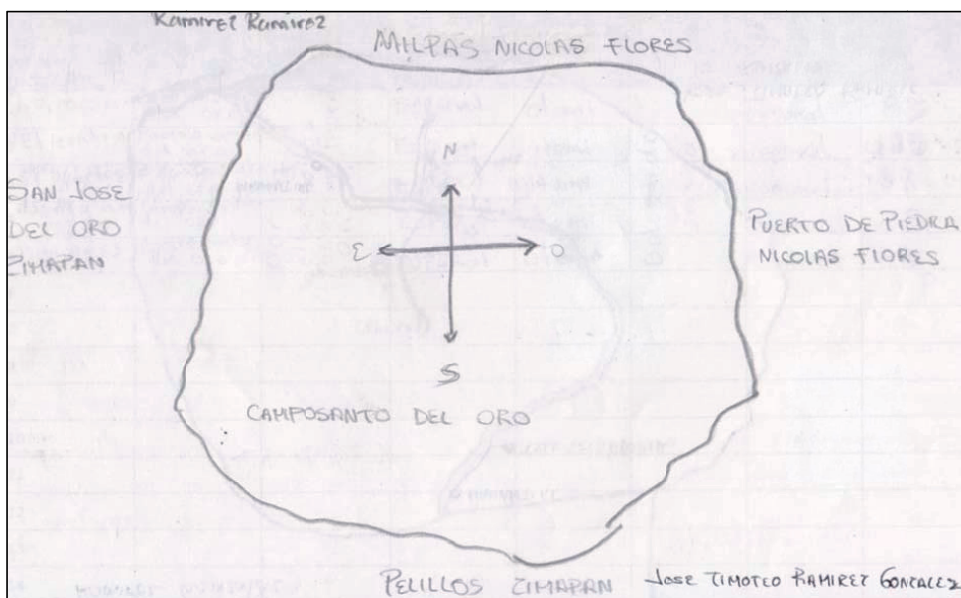 Ramirez Ramirez
MILPAS NICOLAS FLORES
N
SAN JOSE
DEL ORO
ZIMAPAN
E
O
PUERTO DE PIEDRA
NICOLAS FLORES
S
CAMPOSANTO DEL ORO
PELILLOS ZIMAPAN
JOSE TIMOTEO RAMIREZ GONZALEZ